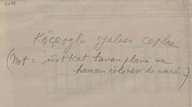 Köçeoğlu yalısı cephe
(Not: üst kat tavan planı ve
hamam rölövesi de vardır)